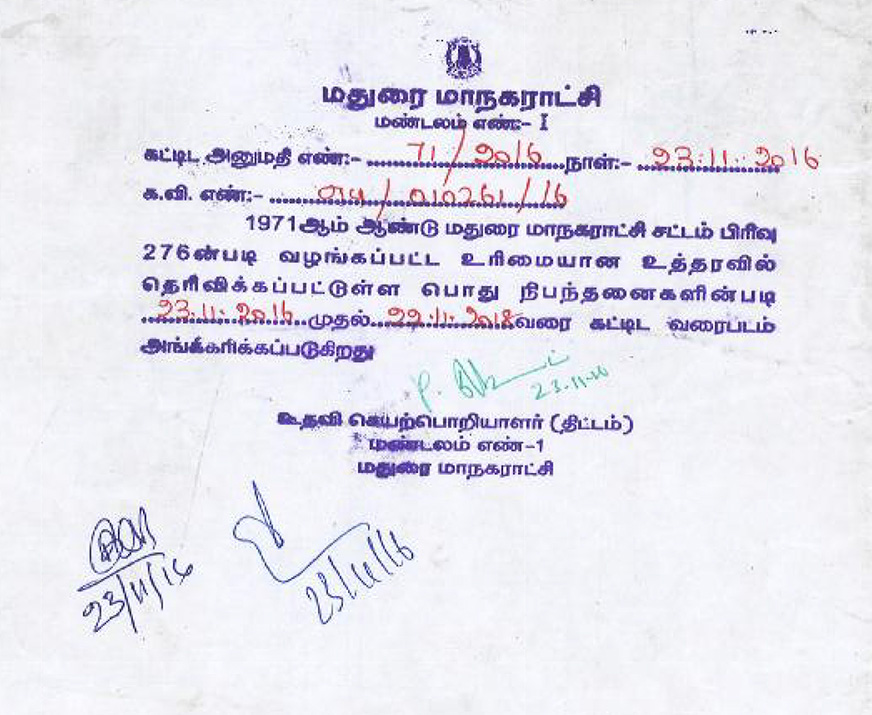 மதுரை மாநகராட்சி
மண்டலம் எண்:- I
கட்டிட அனுமதி எண்:- 71/2016 நாள்:- 23.11.2016
க.வி. எண்:- /010261/16
1971ஆம் ஆண்டு மதுரை மாநகராட்சி சட்டம் பிரிவு
276ன்படி வழங்கப்பட்ட உரிமையான உத்தரவில்
தெரிவிக்கப்பட்டுள்ள பொது நிபந்தனைகளின்படி
23.11.2016 முதல் 22.11.2018 வரை கட்டிட வரைபடம்
அங்கீகரிக்கப்படுகிறது
P. 23.11.16
உதவி செயற்பொறியாளர் (திட்டம்)
மண்டலம் எண்-1
மதுரை மாநகராட்சி
23/11/16
23/11/16